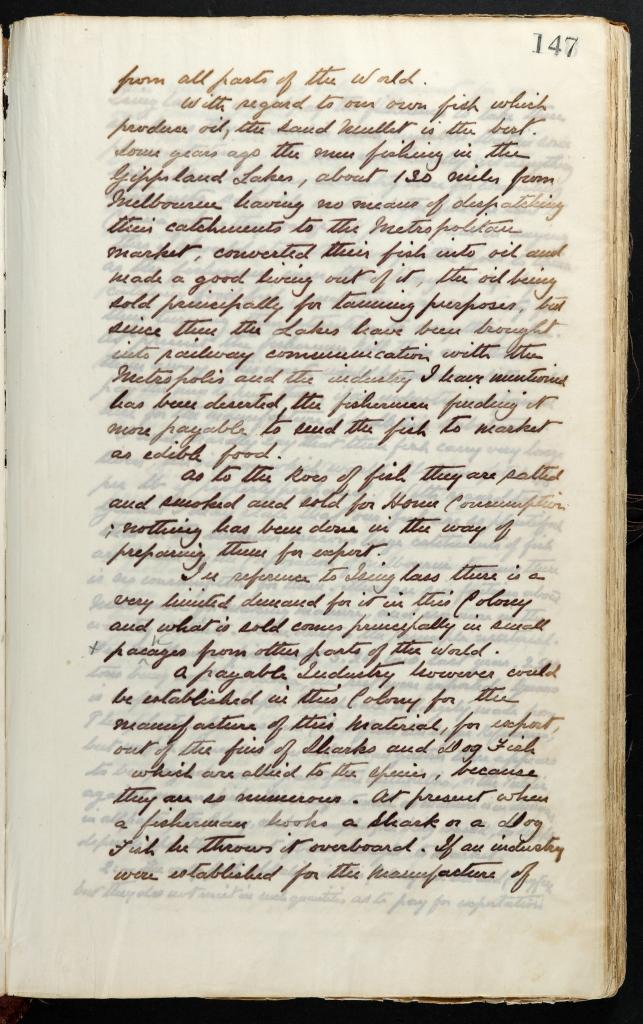 147
from all parts of the World.
With regard to our own fish which
produce oil, the Sand Mullet is the best.
Some years ago the men fishing in the
Gippsland Lakes, about 130 miles from
Melbourne having no means of dispatching
their catchments to the Metropolitan
market, converted their fish into oil and
made a good living out of it, the oil being
sold principally for tanning purposes, but
since then the Lakes have been brought
into railway communication with the
Metropolis and the industry I have mentioned
has been deserted, the fishermen finding it
more payable to send the fish to market
as edible food.
As to the Roes of fish they are salted
and smoked and sold for Home Consumption
; nothing has been done in the way of
preparing them for export.
In reference to Isinglass there is a
very limited demand for it in this Colony
and what is sold comes principally in small
+ pacages from other parts of the world.
A payable Industry however could
be established in this Colony for the
manufacture of this Material, for export,
out of the fins of Sharks and Dog Fish
which are allied to the species, because
they are so numerous. At present when
a fisherman hooks a Shark or a Dog
Fish he throws it overboard. If an industry
were established for the Manufacture of
but they do not exist in such quantities as to pay for exportation